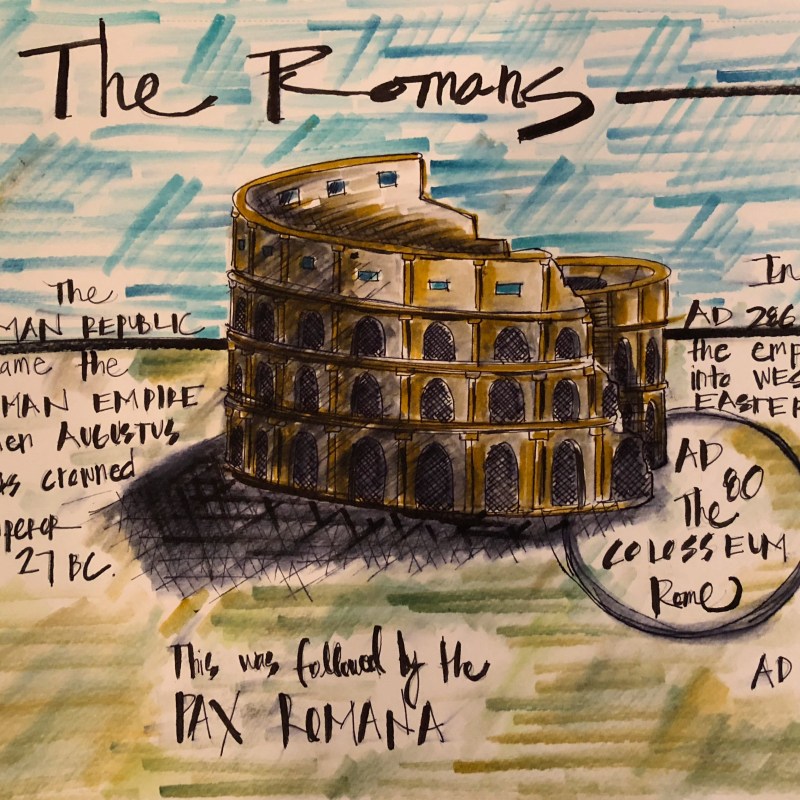 The Romans
The
MAN REPUBLIC
ame the
MAN EMPIRE
hen AUGUSTUS
as crowned
peror
27 BC.
In
AD 286
the emp
into WES
EASTER
AD
80
The
COLOSSEUM
Rome
This was followed by the
PAX ROMANA
AD